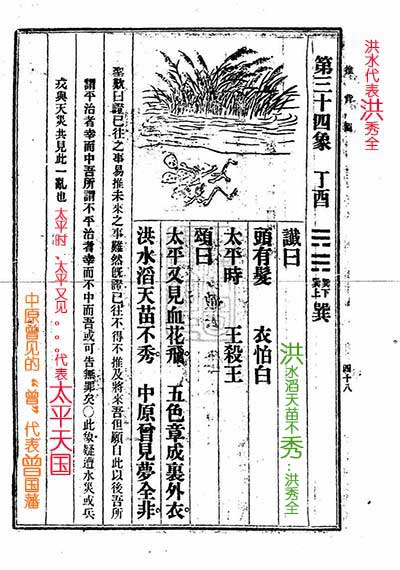 洪水代表洪秀全
推背圖
四十八
第三十四象 丁酉
巽下
巽上
巽
讖曰
頭有髮 衣怕白
太平時 王殺王
頌曰
太平又見血花飛 五色章成裏外衣
洪水滔天苗不秀 中原曾見夢全非
洪水滔天苗不秀：洪秀全
聖歎曰證已往之事易推未來之事難然既證已往不得不推及將來吾但願自此以後吾所
謂平治者幸而中吾所謂不平治者幸而不中而吾或可告無罪矣〇此象疑遭水災或兵
戎與天災共見此一亂也
太平时、太平又见。。。代表太平天国
中原曾见的“曾”代表曾国藩